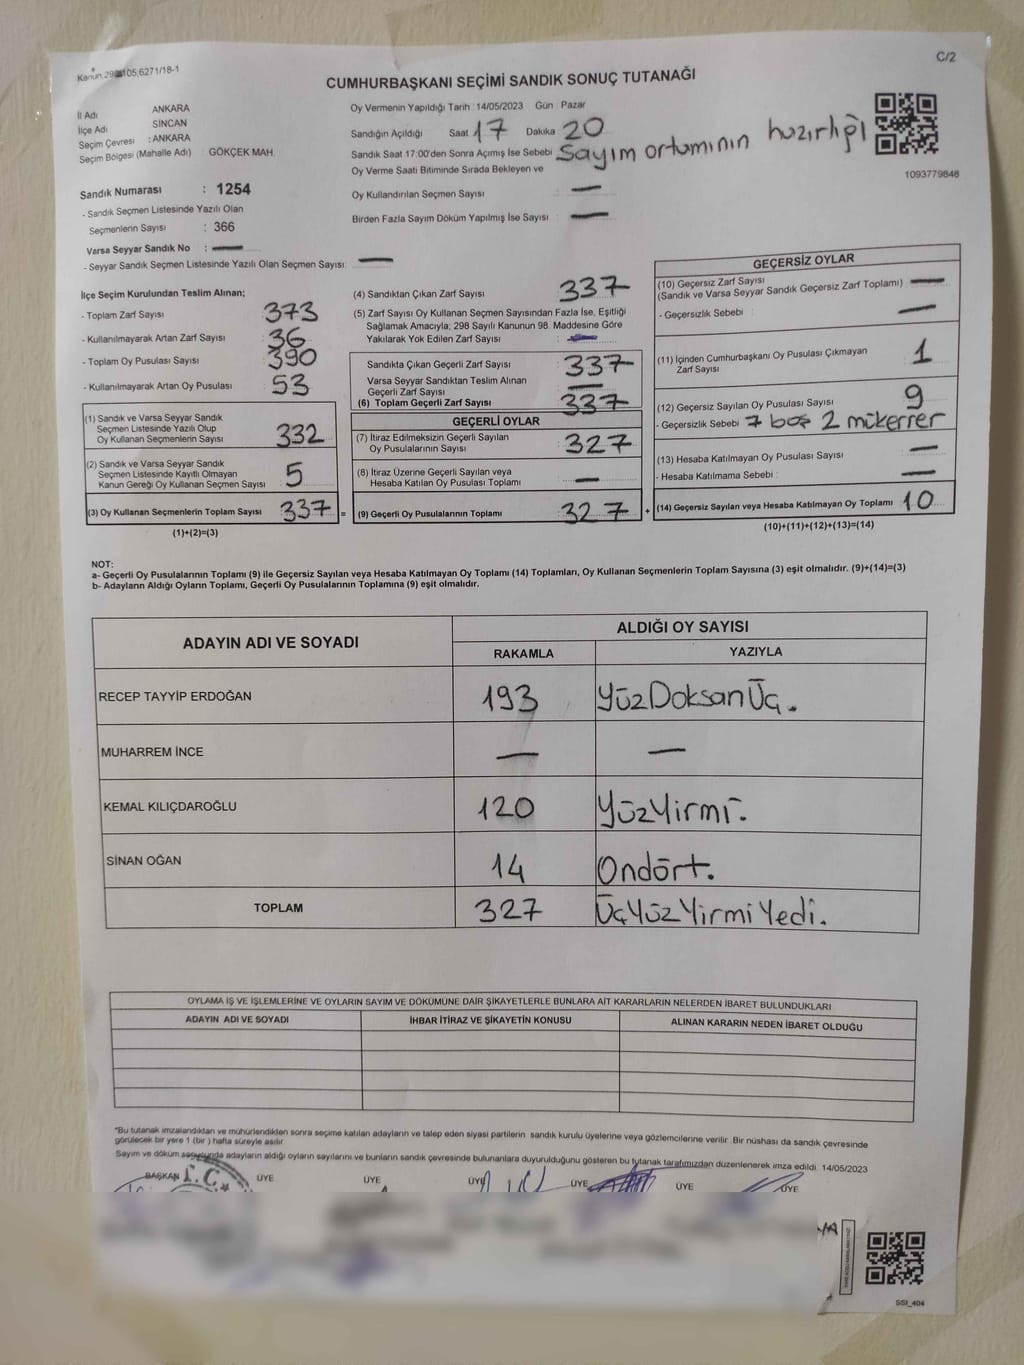 C/2
Kanun.298 105,6271/18-1
CUMHURBAŞKANI SEÇİMİ SANDIK SONUÇ TUTANAĞI
İl Adı ANKARA
İlçe Adı SİNCAN
Seçim Çevresi : ANKARA
Seçim Bölgesi (Mahalle Adı) GÖKÇEK MAH.
Oy Vermenin Yapıldığı Tarih : 14/05/2023 Gün : Pazar
Sandığın Açıldığı Saat 17 Dakika 20
Sandık Saat 17:00'den Sonra Açımış İse Sebebi Sayım ortamının hazırlığı
Oy Verme Saati Bitiminde Sırada Bekleyen ve
Oy Kullandırılan Seçmen Sayısı —
Birden Fazla Sayım Döküm Yapılmış İse Sayısı —
1093779848
Sandık Numarası : 1254
- Sandık Seçmen Listesinde Yazılı Olan
Seçmenlerin Sayısı : 366
Varsa Seyyar Sandık No : —
- Seyyar Sandık Seçmen Listesinde Yazılı Olan Seçmen Sayısı: —
İlçe Seçim Kurulundan Teslim Alınan;
- Toplam Zarf Sayısı 373
- Kullanılmayarak Artan Zarf Sayısı 36
- Toplam Oy Pusulası Sayısı 390
- Kullanılmayarak Artan Oy Pusulası 53
(1) Sandık ve Varsa Seyyar Sandık
Seçmen Listesinde Yazılı Olup
Oy Kullanan Seçmenlerin Sayısı 332
(2) Sandık ve Varsa Seyyar Sandık
Seçmen Listesinde Kayıtlı Olmayan
Kanun Gereği Oy Kullanan Seçmen Sayısı 5
(3) Oy Kullanan Seçmenlerin Toplam Sayısı 337 =
(1)+(2)=(3)
(4) Sandıktan Çıkan Zarf Sayısı 337
(5) Zarf Sayısı Oy Kullanan Seçmen Sayısından Fazla İse, Eşitliği
Sağlamak Amacıyla; 298 Sayılı Kanunun 98. Maddesine Göre
Yakılarak Yok Edilen Zarf Sayısı :
Sandıkta Çıkan Geçerli Zarf Sayısı 337
Varsa Seyyar Sandıktan Teslim Alınan
Geçerli Zarf Sayısı —
(6) Toplam Geçerli Zarf Sayısı 337
GEÇERLİ OYLAR
(7) İtiraz Edilmeksizin Geçerli Sayılan
Oy Pusulalarının Sayısı 327
(8) İtiraz Üzerine Geçerli Sayılan veya
Hesaba Katılan Oy Pusulası Toplamı —
(9) Geçerli Oy Pusulalarının Toplamı 327 +
GEÇERSİZ OYLAR
(10) Geçersiz Zarf Sayısı
(Sandık ve Varsa Seyyar Sandık Geçersiz Zarf Toplamı) —
- Geçersizlik Sebebi : —
(11) İçinden Cumhurbaşkanı Oy Pusulası Çıkmayan
Zarf Sayısı 1
(12) Geçersiz Sayılan Oy Pusulası Sayısı 9
- Geçersizlik Sebebi 7 boş 2 mükerrer
(13) Hesaba Katılmayan Oy Pusulası Sayısı —
- Hesaba Katılmama Sebebi : —
(14) Geçersiz Sayılan veya Hesaba Katılmayan Oy Toplamı 10
(10)+(11)+(12)+(13)=(14)
NOT:
a- Geçerli Oy Pusulalarının Toplamı (9) ile Geçersiz Sayılan veya Hesaba Katılmayan Oy Toplamı (14) Toplamları, Oy Kullanan Seçmenlerin Toplam Sayısına (3) eşit olmalıdır. (9)+(14)=(3)
b- Adayların Aldığı Oyların Toplamı, Geçerli Oy Pusulalarının Toplamına (9) eşit olmalıdır.
ADAYIN ADI VE SOYADI ALDIĞI OY SAYISI
RAKAMLA YAZIYLA
RECEP TAYYİP ERDOĞAN 193 YüzDoksanÜç.
MUHARREM İNCE — —
KEMAL KILIÇDAROĞLU 120 YüzYirmi.
SİNAN OĞAN 14 Ondört.
TOPLAM 327 ÜçYüzYirmiYedi.
OYLAMA İŞ VE İŞLEMLERİNE VE OYLARIN SAYIM VE DÖKÜMÜNE DAİR ŞİKAYETLERLE BUNLARA AİT KARARLARIN NELERDEN İBARET BULUNDUKLARI
ADAYIN ADI VE SOYADI İHBAR İTİRAZ VE ŞİKAYETİN KONUSU ALINAN KARARIN NEDEN İBARET OLDUĞU
*Bu tutanak imzalandıktan ve mühürlendikten sonra seçime katılan adayların ve talep eden siyasi partilerin sandık kurulu üyelerine veya gözlemcilerine verilir. Bir nüshası da sandık çevresinde
görülecek bir yere 1 (bir ) hafta süreyle asılır.
Sayım ve döküm sonucunda adayların aldığı oyların sayılarını ve bunların sandık çevresinde bulunanlara duyurulduğunu gösteren bu tutanak tarafımızdan düzenlenerek imza edildi. 14/05/2023
BAŞKAN ÜYE ÜYE ÜYE ÜYE ÜYE ÜYE
T.C.
SSI_404